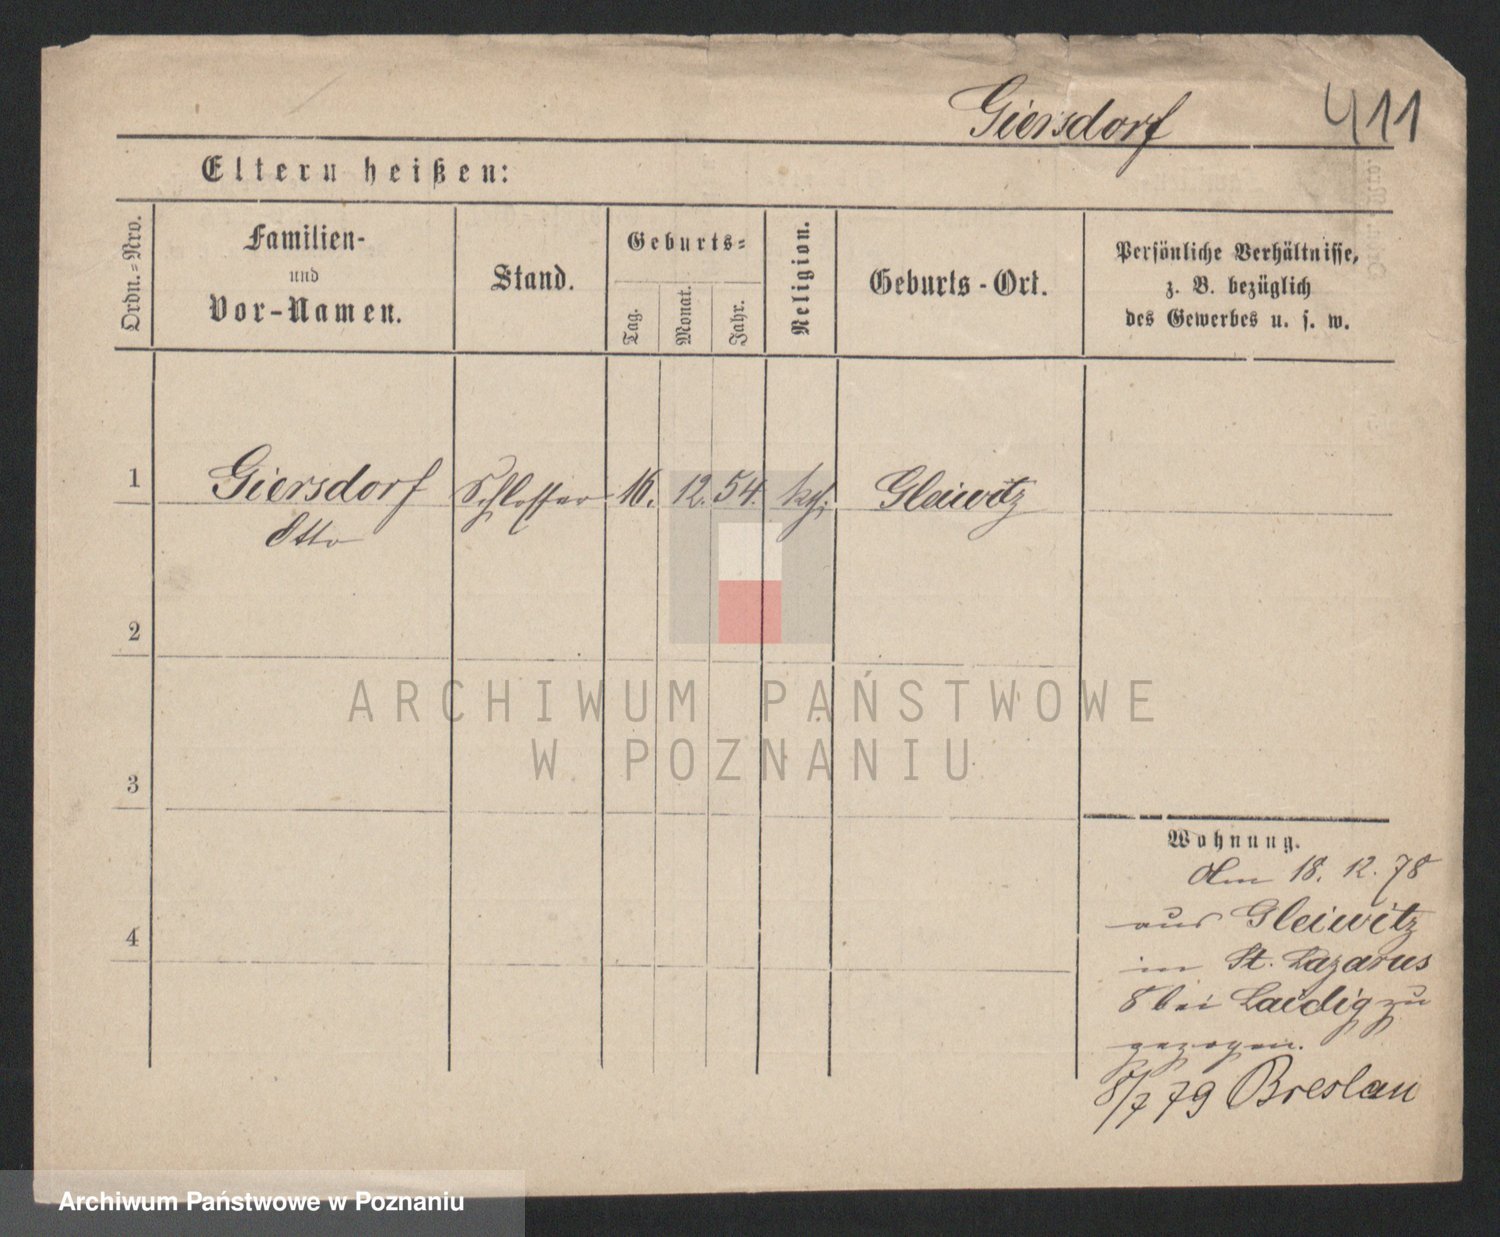 Giersdorf 411
Eltern heißen:
Ordn.=Nro.
Familien-
und
Vor-Namen.
Stand.
Geburts=
Tag.
Monat.
Jahr.
Religion.
Geburts-Ort.
Persönliche Verhältnisse,
z. B. bezüglich
des Gewerbes u. s. w.
1 Giersdorf Schlosser 16. 12. 54. kth: Gleiwitz
Otto
2
3
4
Wohnung.
Am 18. 12. 78
aus Gleiwitz
in St. Lazarus
8 bei Laidig zu
gezogen.
8/7 79 Breslau
ARCHIWUM PAŃSTWOWE
W POZNANIU
Archiwum Państwowe w Poznaniu